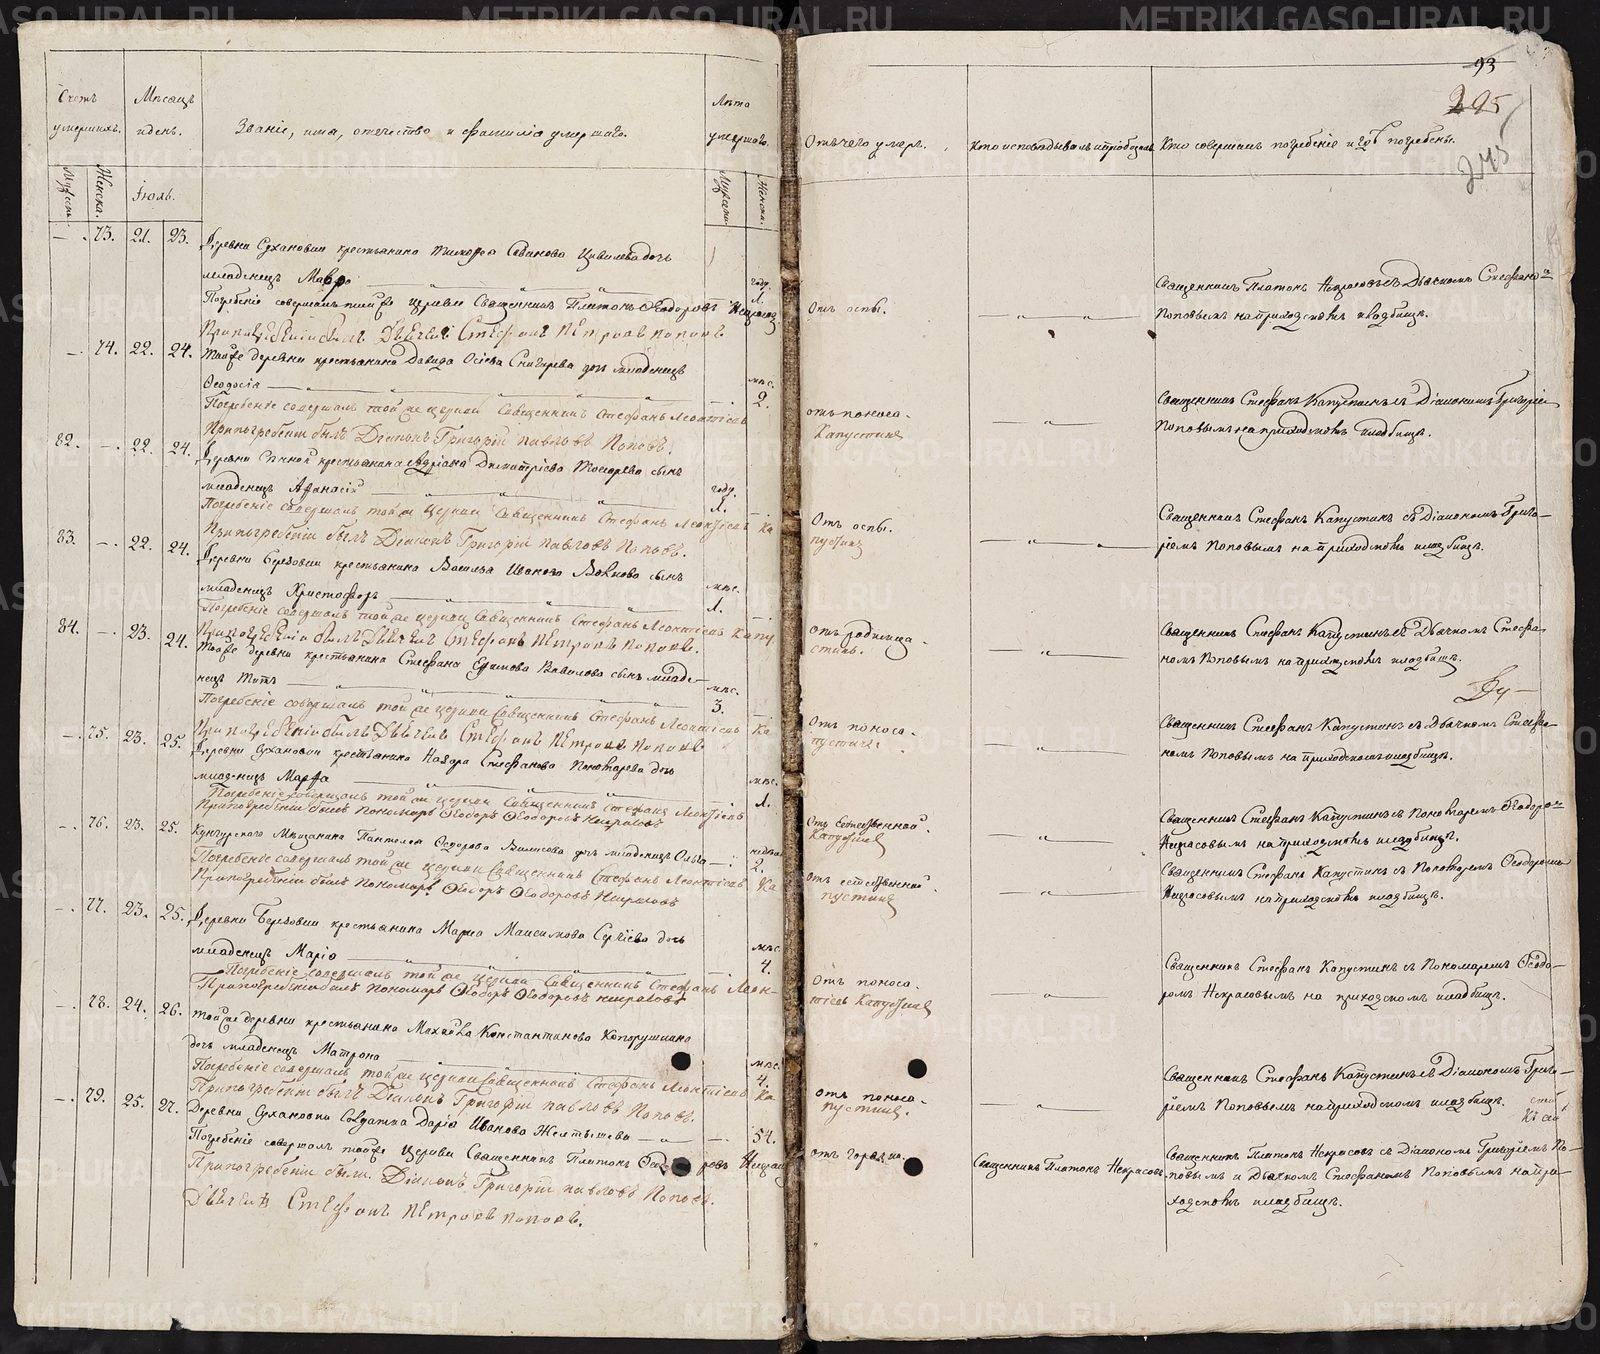 Счетъ умершихъ.
Мѣсяцъ и день.
Званіе, имя, отечество и фамилія умершаго.
Лѣта умершаго.
Мужеска.
Женска.
Іюль.
Мужеска.
Женска.
— 73. 21. 23. Деревни Сухановки крестьянина Тимофея Савинова дочь
младенецъ Мавра
годъ.
1.
Погребеніе совершалъ той же церкви Священникъ Платонъ Ѳеодоровъ Некрасовъ
При погребеніи былъ Дьячекъ Стефанъ Петровъ Поповъ
— 74. 22. 24. Той же деревни крестьянина Давида Осіева Снигирева дочь младенецъ
Ѳеодосія
мѣс.
2.
Погребеніе совершалъ той же церкви Священникъ Стефанъ Леонтіевъ
При погребеніи былъ Діаконъ Григорій Павловъ Поповъ.
82. — 22. 24. Деревни крестьянина Андріана Димитріева сынъ
младенецъ Аѳанасій
годъ.
1.
Погребеніе совершалъ той же церкви Священникъ Стефанъ Леонтіевъ Ка
При погребеніи былъ Діаконъ Григорій Павловъ Поповъ.
83. — 22. 24. Деревни Березовки крестьянина Василья Иванова сынъ
младенецъ Христофоръ
мѣс.
1.
Погребеніе совершалъ той же церкви Священникъ Стефанъ Леонтіевъ Капу
При погребеніи былъ Дьячекъ Стефанъ Петровъ Поповъ.
84. — 23. 24. Той же деревни крестьянина Стефана Ефимова Вавилова сынъ младе-
нецъ Титъ
мѣс.
3.
Погребеніе совершалъ той же церкви Священникъ Стефанъ Леонтіевъ Ка
При погребеніи былъ Дьячекъ Стефанъ Петровъ Поповъ
— 75. 23. 25. Деревни Сухановки крестьянина Назара Стефанова Пономарева дочь
младенецъ Марѳа
мѣс.
1.
Погребеніе совершалъ той же церкви Священникъ Стефанъ Леонтіевъ
При погребеніи былъ Пономарь Ѳеодоръ Ѳеодоровъ Некрасовъ
— 76. 23. 25. Кунгурскаго Мѣщанина Пантелея Ѳедорова дочь младенецъ Ольга
2.
Погребеніе совершалъ той же церкви Священникъ Стефанъ Леонтіевъ Ка
При погребеніи былъ Пономарь Ѳеодоръ Ѳеодоровъ Некрасовъ
— 77. 23. 25. Деревни Березовки крестьянина Марка Максимова Сергіева дочь
младенецъ Марія
мѣс.
4.
Погребеніе совершалъ той же церкви Священникъ Стефанъ Леон-
При погребеніи былъ Пономарь Ѳеодоръ Ѳеодоровъ Некрасовъ
— 78. 24. 26. Той же деревни крестьянина Михайла Константинова
дочь младенецъ Матрона
мѣс.
4.
Погребеніе совершалъ той же церкви Священникъ Стефанъ Леонтіевъ Ка
При погребеніи былъ Діаконъ Григорій Павловъ Поповъ.
— 79. 25. 27. Деревни Сухановки Солдатка Дарія Иванова — 54.
Погребеніе совершалъ той же церкви Священникъ Платонъ Ѳеодоровъ Некрасов
При погребеніи были Діаконъ Григорій Павловъ Поповъ.
Дьячекъ Стефанъ Петровъ Поповъ.
93
295
275
Отъ чего умеръ.
Кто исповѣдывалъ и пріобщалъ.
Кто совершалъ погребеніе и гдѣ погребены.
Отъ оспы.
Священникъ Платонъ Некрасовъ съ Дьячкомъ Стефаномъ
Поповымъ на приходскомъ кладбищѣ.
Отъ поноса.
Капустинъ
Священникъ Стефанъ Капустинъ съ Діакономъ Григоріемъ
Поповымъ на приходскомъ кладбищѣ.
Отъ оспы.
пустинъ
Священникъ Стефанъ Капустинъ съ Діакономъ Григо-
ріемъ Поповымъ на приходскомъ кладбищѣ.
отъ родимца.
стинъ.
Священникъ Стефанъ Капустинъ съ Дьячкомъ Стефа-
номъ Поповымъ на приходскомъ кладбищѣ.
Отъ поноса.
пустинъ
Священникъ Стефанъ Капустинъ съ Дьячкомъ Стефа-
номъ Поповымъ на приходскомъ кладбищѣ.
Отъ Естественной.
Капустинъ
Священникъ Стефанъ Капустинъ съ Пономаремъ Ѳеодоромъ
Некрасовымъ на приходскомъ кладбищѣ.
Отъ естественной.
пустинъ
Священникъ Стефанъ Капустинъ съ Пономаремъ Ѳеодоромъ
Некрасовымъ на приходскомъ кладбищѣ.
Отъ поноса.
тіевъ Капустинъ
Священникъ Стефанъ Капустинъ съ Пономаремъ Ѳеодо-
ромъ Некрасовымъ на приходскомъ кладбищѣ.
отъ поноса.
пустинъ.
Священникъ Стефанъ Капустинъ съ Діакономъ Григо-
ріемъ Поповымъ на приходскомъ кладбищѣ.
отъ горячки.
Священникъ Платонъ Некрасовъ
Священникъ Платонъ Некрасовъ съ Діакономъ Григоріемъ По-
повымъ и Дьячкомъ Стефаномъ Поповымъ на при-
ходскомъ кладбищѣ.
METRIKI.GASO-URAL.RU